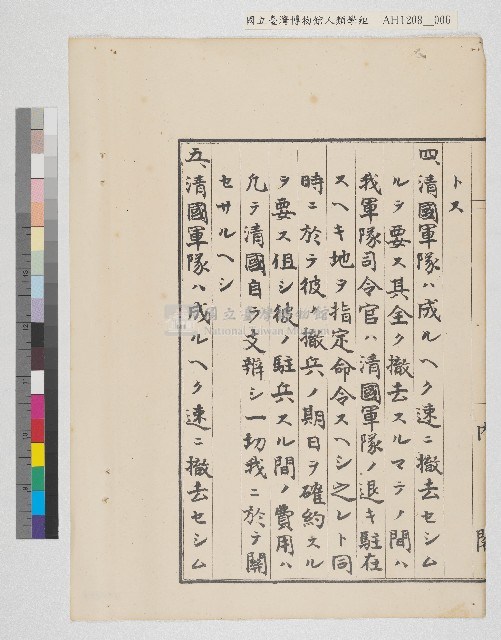 國立臺灣博物館人類學組 AH1208__006
トス
四、清國軍隊ハ成ルヘク速ニ撤去セシム
ルヲ要ス其全ク撤去スルマテノ間ハ
我軍隊司令官ハ清國軍隊ノ退キ駐在
スヘキ地ヲ指定命令スヘシ之レト同
時ニ於テ彼ノ撤兵ノ期日ヲ確約スル
ヲ要ス但シ彼ノ駐兵スル間ノ費用ハ
凢テ清國自ラ支辨シ一切我ニ於テ關
セサルヘシ
五、清國軍隊ハ成ルヘク速ニ撤去セシム
內
閣
國立臺灣博物館
National Taiwan Museum